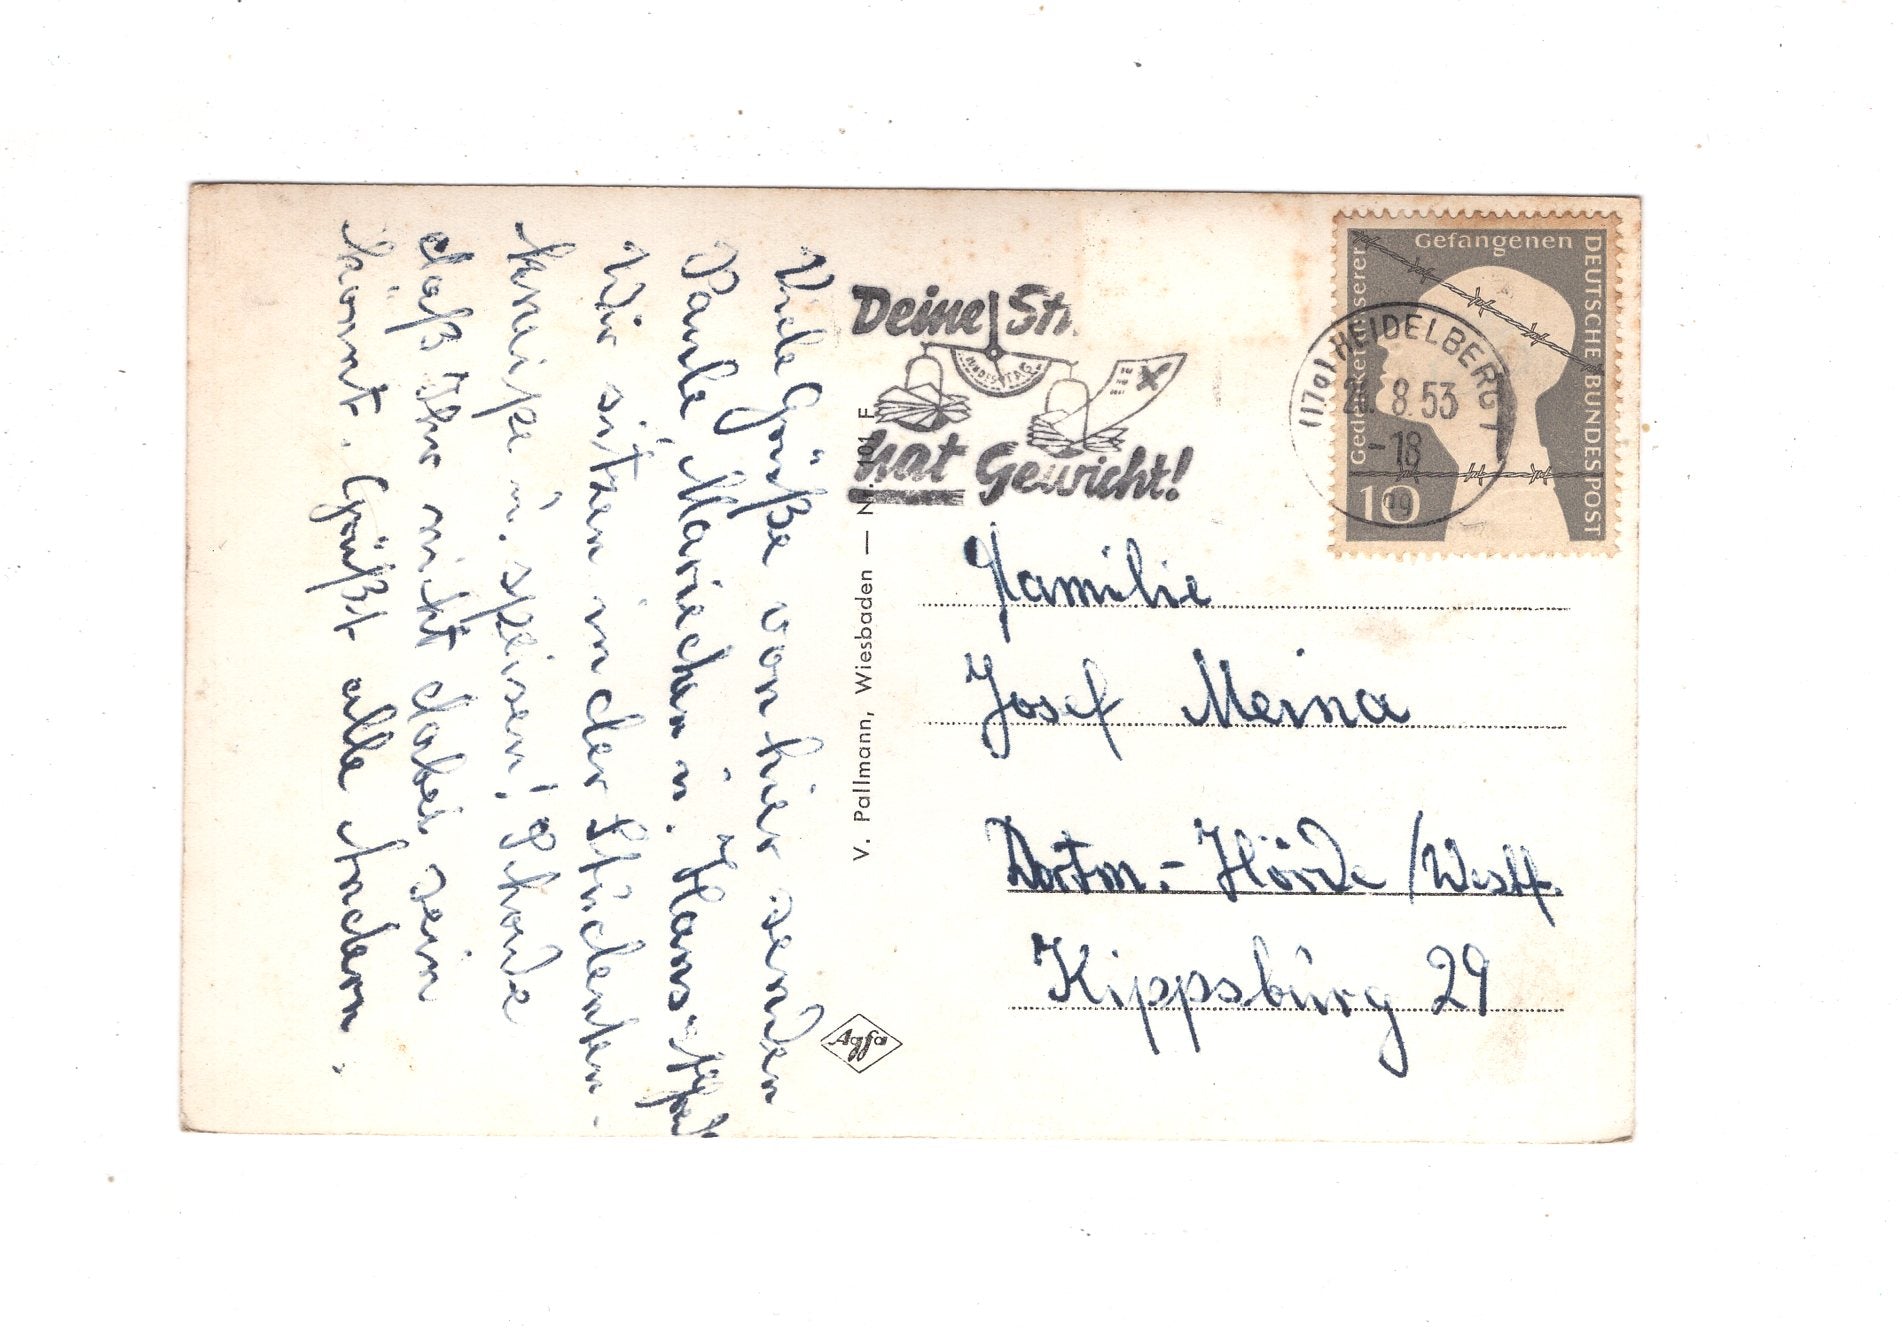 Viele Grüße von hier senden
Paula Mariechen u. Hans
Wir sitzen in der Studenten-
kneipe u. speisen! Schade
daß Ihr nicht dabei sein
könnt. Grüßt alle
V. Pallmann, Wiesbaden — Nr. 101 F
Agfa
Deine Sti
BUNDESTAG
hat Gewicht!
Gedenket unserer
Gefangenen
DEUTSCHE BUNDESPOST
10
(17a) HEIDELBERG 1
8.53
-18
Familie
Josef Meina
Dortm.-Hörde /Westf.
Kippsburg 29